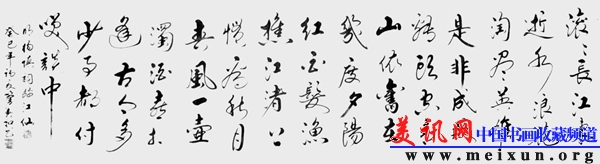 滚滚长江东
逝水浪花
淘尽英雄
是非成敗
轉頭空青
山依舊在
幾度夕陽
红白髮漁
樵江渚上
慣看秋月
春風一壶
濁酒喜相
逢古今多
少事都付
笑談中
明杨慎词临江仙
癸巳年
美讯网
中国书画收藏频道
www.meixun.org